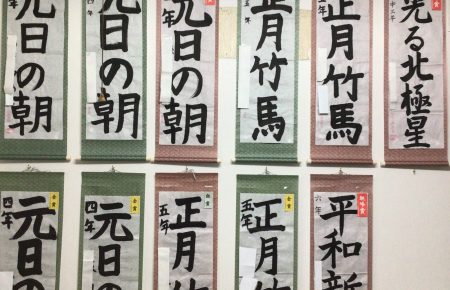 元日の朝
年
元日の朝
年
元日の朝
年
正月竹馬
五年
正月竹馬
年
光る北極星
元日の
四年
金賞
元日の
四年
金賞
正月竹
五年
正月竹
五年
金賞
平和新
六年